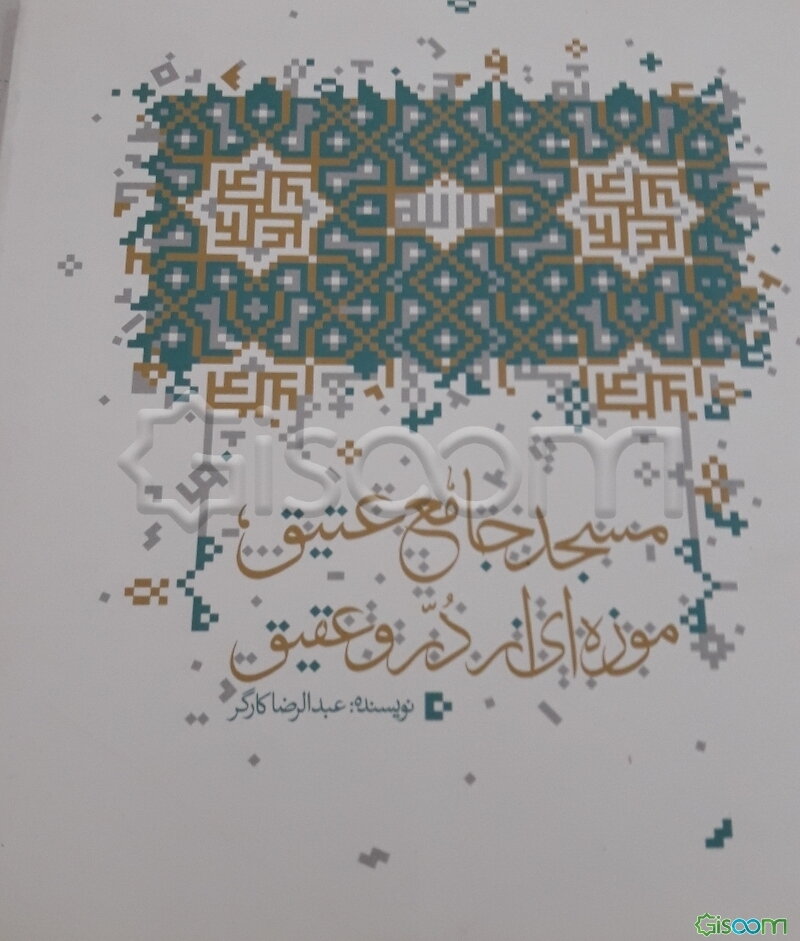 یا الله
Gisoom
مسجد جامع عتیق،
موزه ای از دُرّ و عقیق
نویسنده: عبدالرضا کارگر
Gisoom